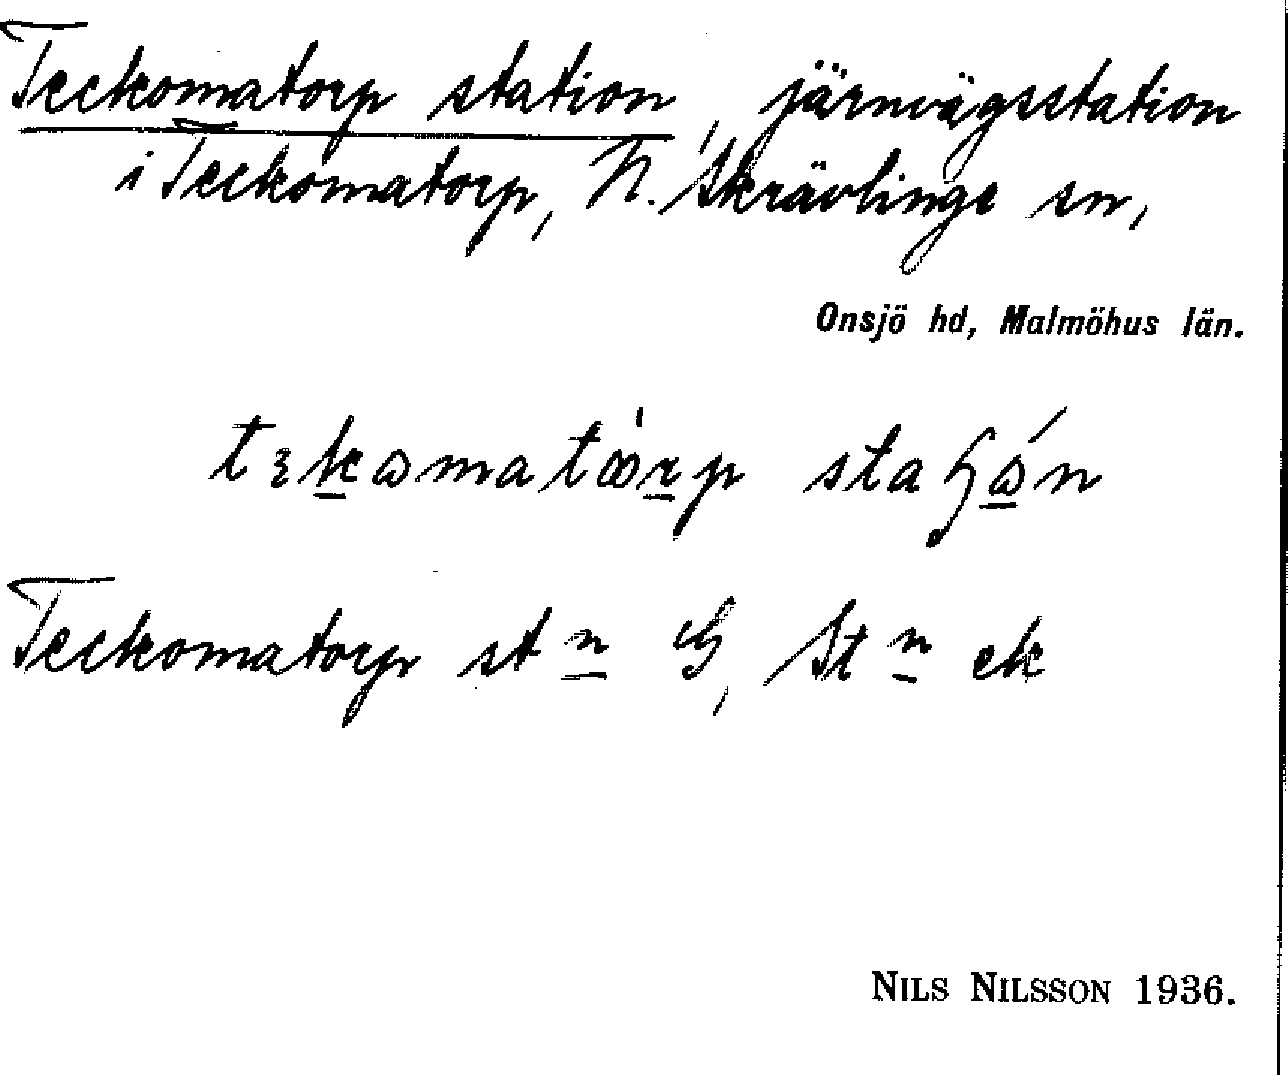 Teckomatorp station, järnvägsstation
i Teckomatorp, N. Skrävlinge sn,
Onsjö hd, Malmöhus län.
Teckomatorp stn G, Stn ek
NILS NILSSON 1936.